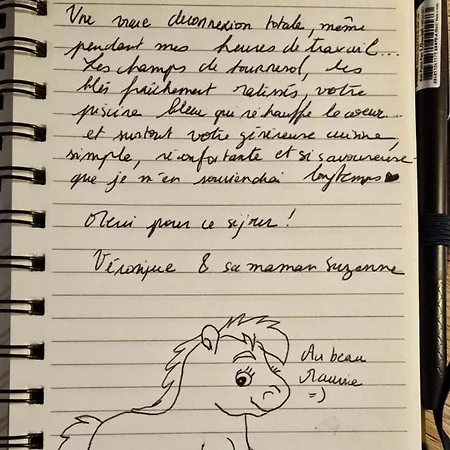 Une vraie deconnexion totale, même
pendant mes heures de travail...
Les champs de tournesol, les
blés fraîchement ratissés, votre
piscine bleue qui réchauffe le coeur...
et surtout votre généreuse cuisine,
simple, réconfortante et si savoureuse
que je m'en souviendrai longtemps
Merci pour ce séjour !
Véronique & sa maman Suzanne
Au beau
Maurice
=)